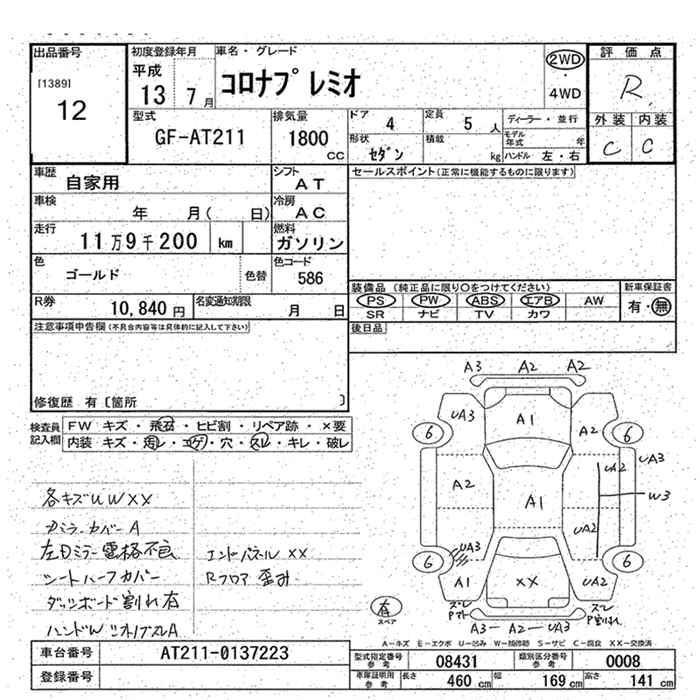 出品番号
[1389]
12
初度登録年月
平成
13 7月
車名・グレード
コロナプレミオ
2WD
・
4WD
評価点
R
外装 内装
C C
型式
GF-AT211
排気量
1800
CC
ドア 4
定員 5 人
形状 セダン
積載 kg
ディーラー・並行
モデル年式 年
ハンドル 左・右
車歴
自家用
シフト
AT
車検
年 月( 日)
冷房
AC
走行
11万9千200 km
燃料
ガソリン
色
ゴールド
色替
色コード
586
R券
10,840円
名変通知期限
月 日
セールスポイント(正常に機能するものに限ります)
装備品 (純正品に限り○をつけてください)
新車保証書
PS PW ABS エアB AW
有・無
SR ナビ TV カワ
後日品
注意事項申告欄(不具合内容等は具体的に記入して下さい)
修復歴 有〔箇所 〕
検査員記入欄
FW キズ・飛石・ヒビ割・リペア跡・×要
内装 キズ・汚レ・コゲ・穴・スレ・キレ・破レ
各キズUWXX
カバー A
左Dミラー電格不良
シートハーフカバー
ダッシュボード割れ有
ハンドルW
エンドパネルXX
Rフロア歪み
A3 A2 A2
UA3 A1 A2
6 6
A2 A1 UA2 UA3
W3
UA2
UA3
6 6
A1 XX UA2
スレ スレ
A3 A2 UA3
有
スペア
A-キズ E-エクボ U-凹み W-補修跡 S-サビ C-腐食 XX-交換済
車台番号
AT211-0137223
登録番号
型式指定番号 参考
08431
類別区分番号 参考
0008
車庫証明用 参考
長さ 460 cm
幅 169 cm
高さ 141 cm